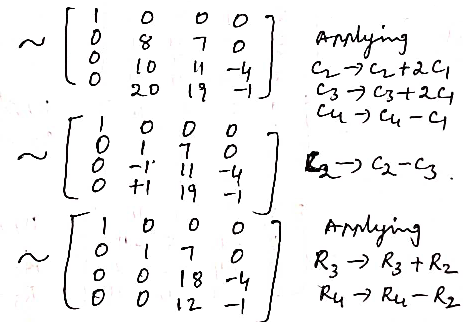 ~ [ 1 0 0 0
0 8 7 0
0 10 11 -4
0 20 19 -1 ]
Applying
C2 → C2 + 2C1
C3 → C3 + 2C1
C4 → C4 - C1
~ [ 1 0 0 0
0 1 7 0
0 -1 11 -4
0 +1 19 -1 ]
C2 → C2 - C3 .
~ [ 1 0 0 0
0 1 7 0
0 0 18 -4
0 0 12 -1 ]
Applying
R3 → R3 + R2
R4 → R4 - R2